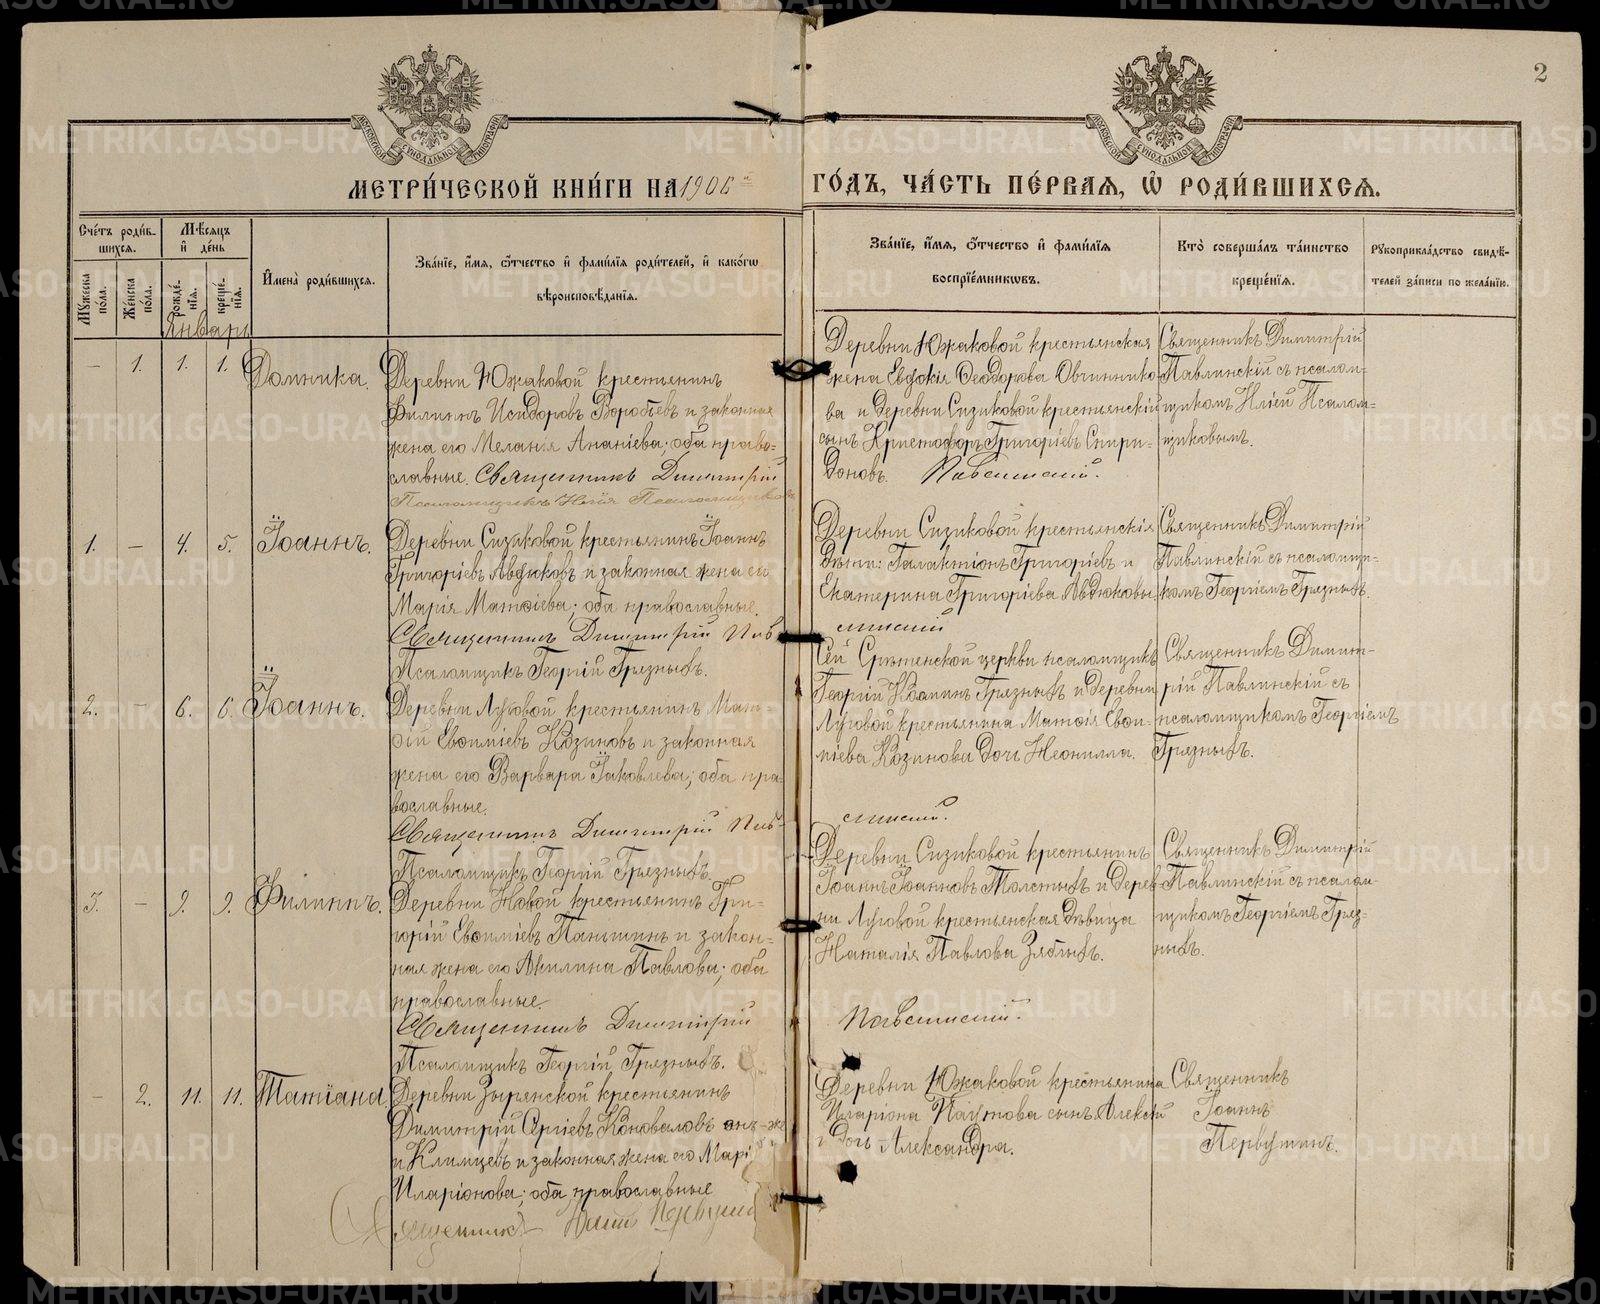 2
МОСКОВСКОЙ СѴНОДАЛЬНОЙ ТИПОГРАФІИ
МОСКОВСКОЙ СѴНОДАЛЬНОЙ ТИПОГРАФІИ
МЕТРИ́ЧЕСКОЙ КНИ́ГИ НА 1906 й ГО́ДЪ, ЧА́СТЬ ПЕ́РВАЯ, Ѡ РОДИ́ВШИХСЯ.
Сче́тъ роди́в-
шихся.
Мꙋжеска по́ла.
Же́нска по́ла.
Мѣ́сяцъ
и҆ де́нь
рожде́-
нїя.
креще́-
нїя.
И҆мена̀ роди́вшихся.
Зва́нїе, и҆́мя, ѻ҆́тчество и҆ фами́лїя роди́телей, и҆ како́гѡ
вѣроисповѣ́данїя.
Зва́нїе, и҆́мя, ѻ҆́тчество и҆ фами́лїя
воспрїе́мникѡвъ.
Кто̀ соверша́лъ та́инство
креще́нїя.
Рꙋкоприкла́дство свидѣ́-
телей за́писи по жела́нїю.
Январь
— 1. 1. 1. Домника.
Деревни Южаковой крестьянинъ
Филиппъ Исидоровъ Воробьевъ и законная
жена его Меланія Ананіева; оба право-
славные. Священникъ Димитрій
Псаломщикъ Илія Псаломщиковъ
Деревни Южаковой крестьянская
жена Евдокія Ѳеодорова Овчиннико-
ва и деревни Сизиковой крестьянскій
сынъ Христофоръ Григоріевъ Спири-
доновъ. Павлинскій.
Священникъ Димитрій
Павлинскій съ псалом-
щикомъ Иліей Псалом-
щиковымъ.
1. — 4. 5. Іоаннъ.
Деревни Сизиковой крестьянинъ Іоаннъ
Григоріевъ Авдюковъ и законная жена его
Марія Матѳіева; оба православные.
Священникъ Димитрій Пав
Псаломщикъ Георгій Грязныхъ.
Деревни Сизиковой крестьянскія
дѣти: Галактіонъ Григоріевъ и
Екатерина Григоріева Авдюковы.
линскій
Священникъ Димитрій
Павлинскій съ псаломщи-
комъ Георгіемъ Грязныхъ.
2. — 6. 6. Іоаннъ.
Деревни Луговой крестьянинъ Мат-
ѳій Евѳиміевъ Козиновъ и законная
жена его Варвара Іаковлева; оба пра-
вославные.
Священникъ Димитрій Пав-
Псаломщикъ Георгій Грязныхъ.
Сей Срѣтенской церкви псаломщикъ
Георгій Грязныхъ и деревни
Луговой крестьянина Матѳія Евѳи-
міева Козинова дочь Неонилла.
линскій.
Священникъ Димит-
рій Павлинскій съ
псаломщикомъ Георгіемъ
Грязныхъ.
3. — 9. 9. Филиппъ.
Деревни Новой крестьянинъ Гри-
горій Евѳиміевъ Паньшинъ и закон-
ная жена его Акилина Павлова; оба
православные
Священникъ Димитрій
Псаломщикъ Георгій Грязныхъ.
Деревни Сизиковой крестьянинъ
Іоаннъ Іоанновъ Толстыхъ и дерев-
ни Луговой крестьянская дѣвица
Наталія Павлова Зяблыхъ.
Павлинскій.
Священникъ Димитрій
Павлинскій съ псалом-
щикомъ Георгіемъ Гряз-
ныхъ.
— 2. 11. 11. Татіана
Деревни Зырянской крестьянинъ
Димитрій Сергіевъ Коноваловъ онъ-же
и Климцевъ и законная жена его Марі
Иларіонова; оба православные
Священникъ Первушин
Деревни Южаковой крестьянина
Иларіона Паутова сынъ Алексій
и дочь Александра.
Священникъ
Іоаннъ
Первушинъ.
METRIKI.GASO-URAL.RU